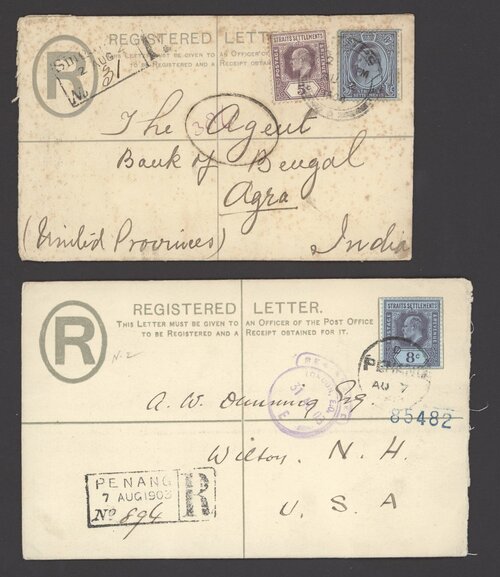 REGISTERED LETTER.
THIS LETTER MUST BE GIVEN TO AN OFFICER OF THE POST OFFICE
TO BE REGISTERED AND A RECEIPT OBTAINED FOR IT.
R
2 AUG
R
No 31
STRAITS SETTLEMENTS
POSTAGE
5c
The Agent
Bank of Bengal
Agra
(United Provinces) India
REGISTERED LETTER.
THIS LETTER MUST BE GIVEN TO AN OFFICER OF THE POST OFFICE
TO BE REGISTERED AND A RECEIPT OBTAINED FOR IT.
R
N.2
STRAITS SETTLEMENTS
8c
PENANG
AU 7
85482
A. W. Dunning Esq.
Wilton, N. H.
U. S. A
PENANG
7 AUG 1903
No 894
R